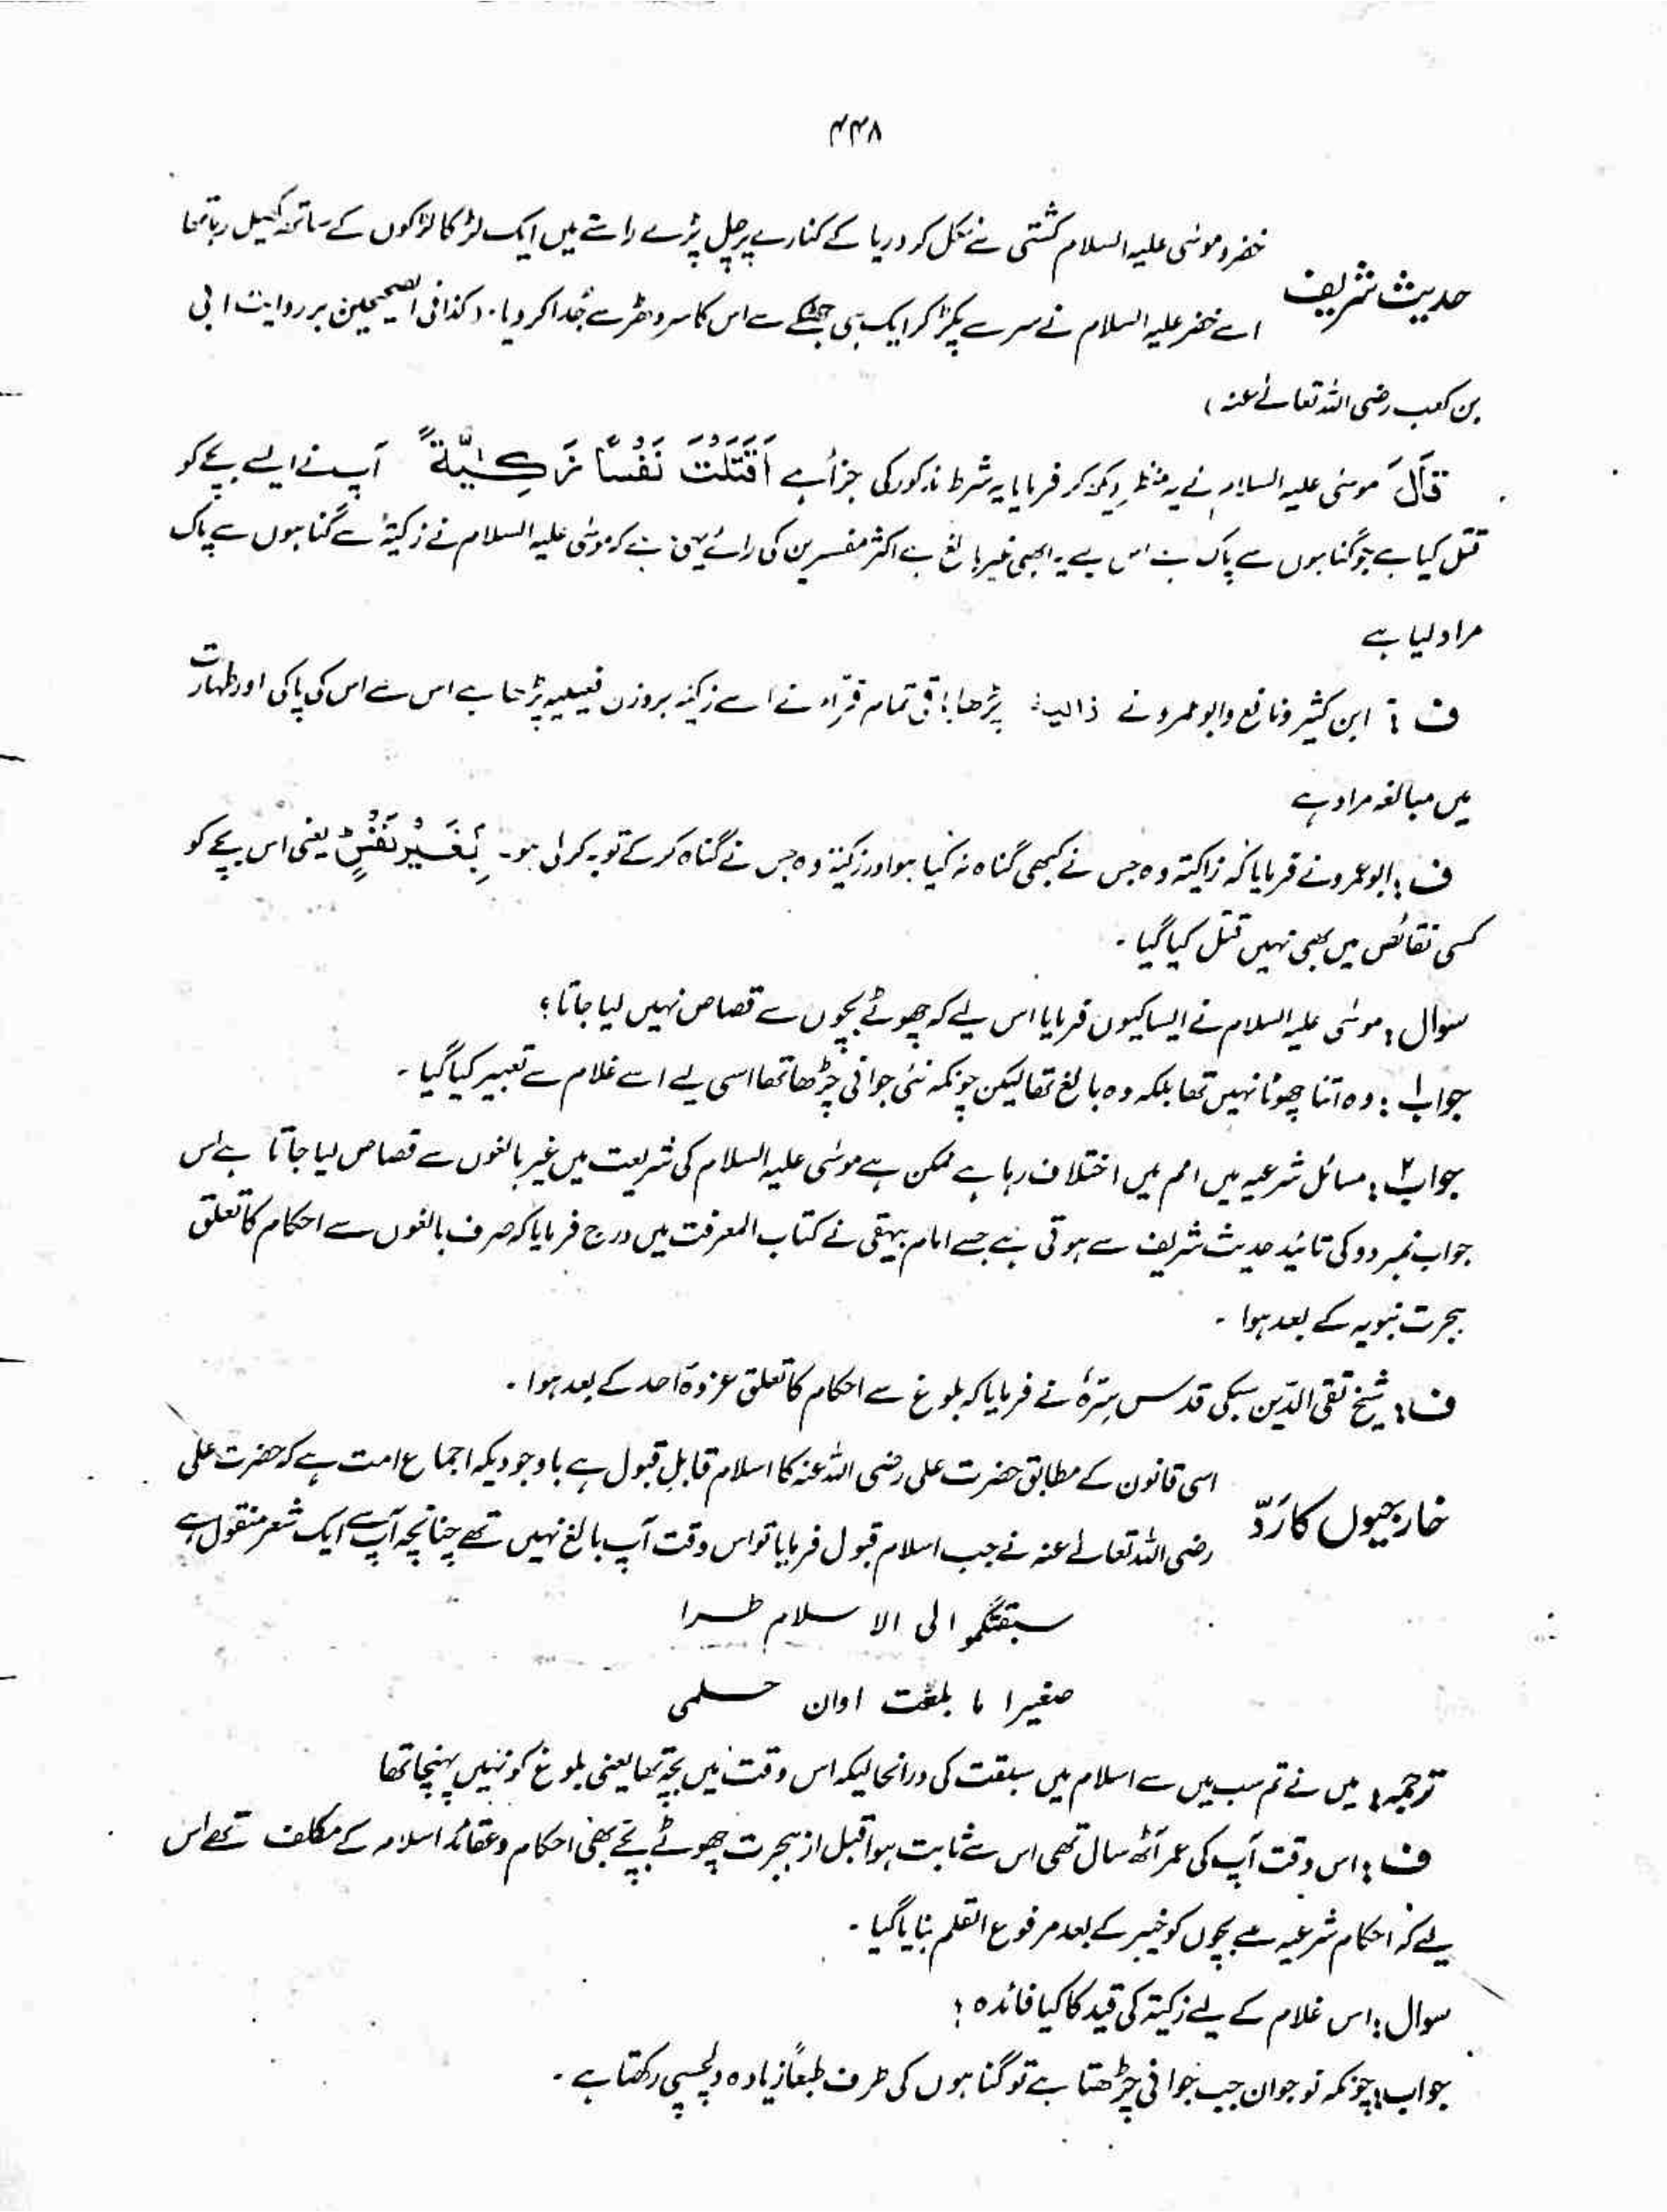 ۴۴۸
خضر و موسٰی علیہ السلام کشتی سے نکل کر دریا کے کنارے پر چل پڑے راستے میں ایک لڑکا لڑکوں کے ساتھ کھیل رہا تھا
حدیث شریف
اسے خضر علیہ السلام نے سر سے پکڑ کر ایک ہی جھٹکے سے اس کا سر دھڑ سے جُدا کر دیا۔ (کذا فی الصحیحین بر روایت ابی
بن کعب رضی اللہ تعالٰے عنہ)
قَالَ موسٰی علیہ السلام نے یہ منظر دیکھ کر فرمایا یہ شرط مذکور کی جزأ ہے اَقَتَلْتَ نَفْسًا زَكِيَّةً آپ نے ایسے بچے کو
قتل کیا ہے جو گناہوں سے پاک ہے اس لیے یہ ابھی غیر بالغ ہے اکثر مفسرین کی رائے یہی ہے کہ موسٰی علیہ السلام نے زکیۃً سے گناہوں سے پاک
مراد لیا ہے
ف : ابن کثیر و نافع و ابو عمرو نے ذاکیۃ پڑھا باقی تمام قرّاء نے اسے زکیۃ بروزن فعیلیہ پڑھا ہے اس سے اس کی پاکی اور طہارت
میں مبالغہ مراد ہے
ف : ابو عمرو نے فرمایا کہ زاکیتہ وہ جس نے کبھی گناہ نہ کیا ہو اور زکیۃ وہ جس نے گناہ کر کے توبہ کر لی ہو۔ بِغَيْرِ نَفْسٍ یعنی اس بچے کو
کسی نقائص میں بھی نہیں قتل کیا گیا ۔
سوال : موسٰی علیہ السلام نے ایسا کیوں فرمایا اس لیے کہ چھوٹے بچوں سے قصاص نہیں لیا جاتا ؟
جواب ۱ : وہ اتنا چھوٹا نہیں تھا بلکہ وہ بالغ تھا لیکن چونکہ نئی جوانی چڑھا تھا اسی لیے اسے غلام سے تعبیر کیا گیا ۔
جواب ۲ : مسائل شرعیہ میں امم میں اختلاف رہا ہے ممکن ہے موسٰی علیہ السلام کی شریعت میں غیر بالغوں سے قصاص لیا جاتا ہے اس
جواب نمبر دو کی تائید حدیث شریف سے ہوتی ہے جسے امام بیہقی نے کتاب المعرفت میں درج فرمایا کہ صرف بالغوں سے احکام کا تعلق
ہجرت نبویہ کے بعد ہوا ۔
ف : شیخ تقی الدّین سبکی قدس سِرّہٗ نے فرمایا کہ بلوغ سے احکام کا تعلق غزوۂ احد کے بعد ہوا ۔
اسی قانون کے مطابق حضرت علی رضی اللہ عنہ کا اسلام قابلِ قبول ہے باوجودیکہ اجماع امت ہے کہ حضرت علی
خارجیوں کا رَدّ
رضی اللہ تعالٰے عنہ نے جب اسلام قبول فرمایا تو اس وقت آپ بالغ نہیں تھے چنانچہ آپ سے ایک شعر منقول ہے
سبقتکمو الی الاسلام طرا
صغیرا ما بلغت اوان حلمی
ترجمہ : میں نے تم سب میں سے اسلام میں سبقت کی درانحالیکہ اس وقت میں بچّہ تھا یعنی بلوغ کو نہیں پہنچا تھا
ف : اس وقت آپ کی عمر آٹھ سال تھی اس سے ثابت ہوا قبل از ہجرت چھوٹے بچے بھی احکام و عقائد اسلام کے مکلف تھے اس
لیے کہ احکام شرعیہ سے بچوں کو خیبر کے بعد مرفوع القلم بنایا گیا ۔
سوال : اس غلام کے لیے زکیۃ کی قید کا کیا فائدہ ؟
جواب : چونکہ نوجوان جب جوانی چڑھتا ہے تو گناہوں کی طرف طبعاً زیادہ دلچسپی رکھتا ہے ۔